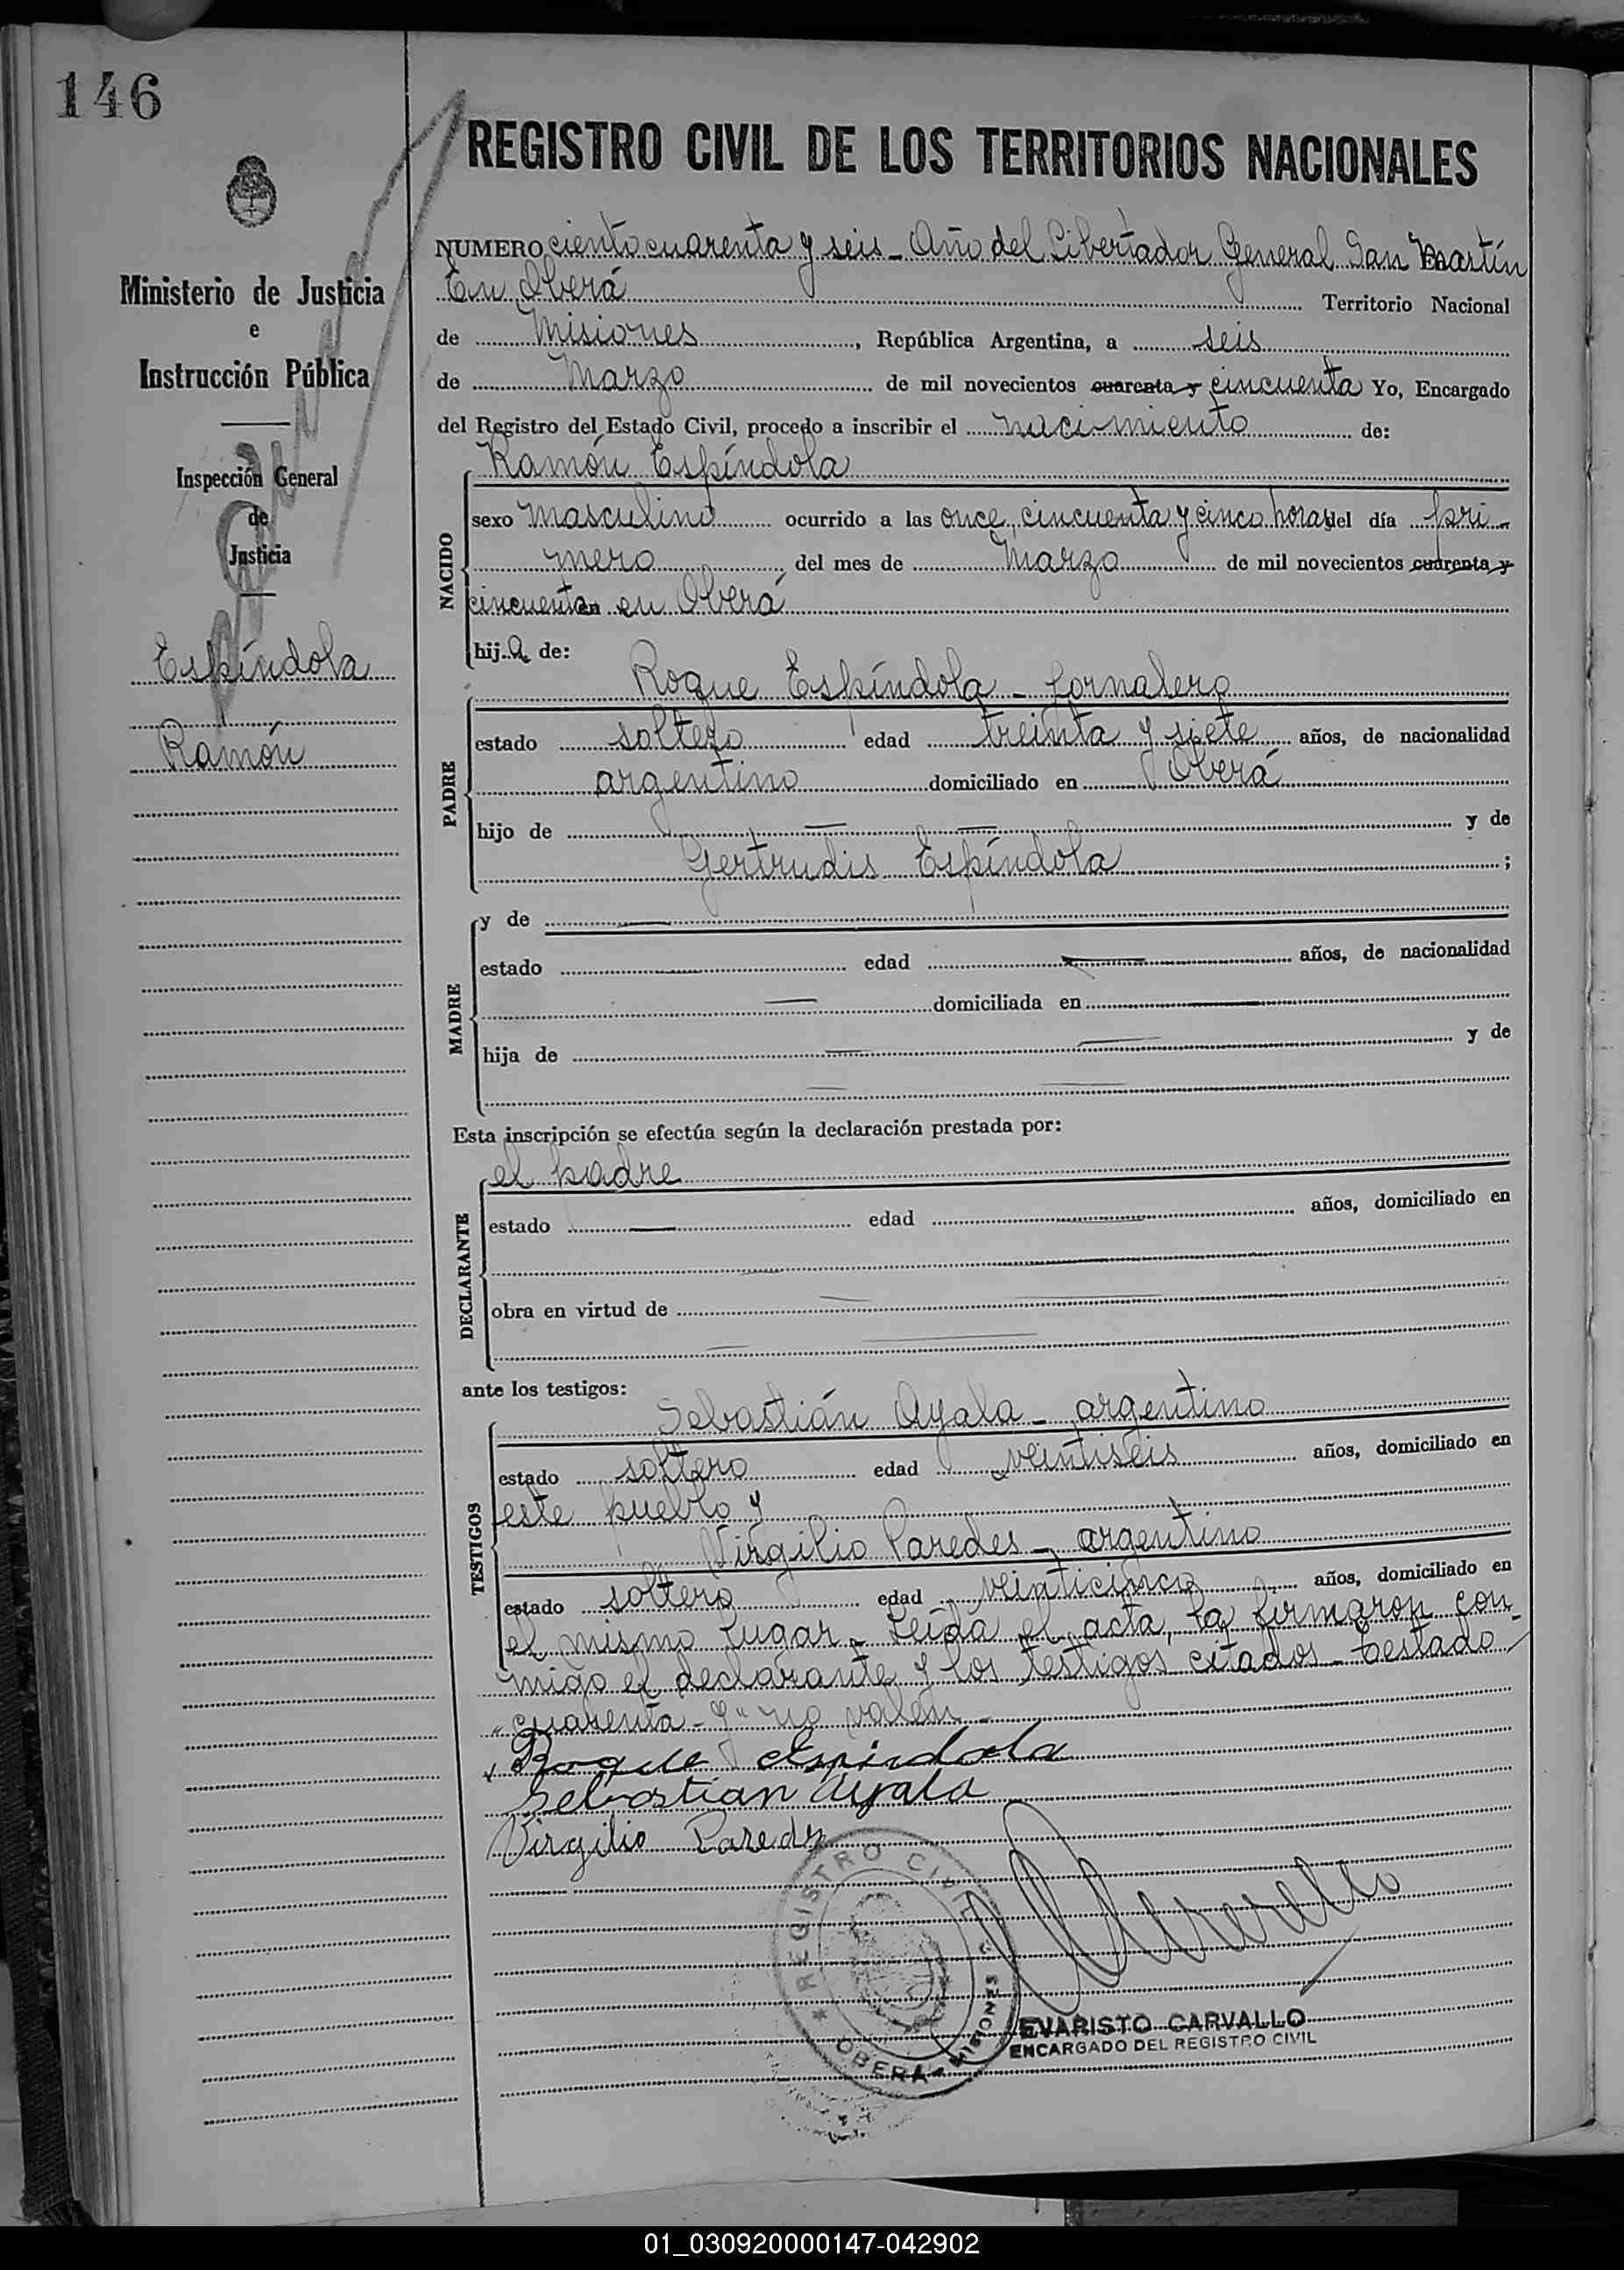 146
REGISTRO CIVIL DE LOS TERRITORIOS NACIONALES
Ministerio de Justicia
e
Instrucción Pública
Inspección General
de
Justicia
Espíndola
Ramón
NUMERO ciento cuarenta y seis - Año del Libertador General San Martín
En Oberá Territorio Nacional
de Misiones, República Argentina, a seis
de Marzo de mil novecientos cuarenta y cincuenta Yo, Encargado
del Registro del Estado Civil, procedo a inscribir el nacimiento de:
Ramón Espíndola
NACIDO
sexo masculino ocurrido a las once, cincuenta y cinco horas del día pri-
mero del mes de Marzo de mil novecientos cuarenta y
cincuenta en Oberá
hijo de:
Roque Espíndola - Jornalero
PADRE
estado soltero edad treinta y siete años, de nacionalidad
argentino domiciliado en Oberá
hijo de — — y de
Gertrudis Espíndola ;
MADRE
y de —
estado — edad — años, de nacionalidad
— domiciliada en —
hija de — — y de
— —
Esta inscripción se efectúa según la declaración prestada por:
el padre
DECLARANTE
estado — edad — años, domiciliado en
— —
obra en virtud de — —
— —
ante los testigos:
Sebastián Ayala - argentino
TESTIGOS
estado soltero edad veintiseis años, domiciliado en
este pueblo y
Virgilio Paredes - argentino
estado soltero edad veinticinco años, domiciliado en
el mismo lugar - Leída el acta, la firmaron con-
migo el declarante y los testigos citados - Testado
"cuarenta - y" no valen -
Roque Espindola
Sebastian Ayala
Virgilio Paredes
REGISTRO CIVIL
OBERA - MISIONES
EVARISTO CARVALLO
ENCARGADO DEL REGISTRO CIVIL
01_030920000147-042902